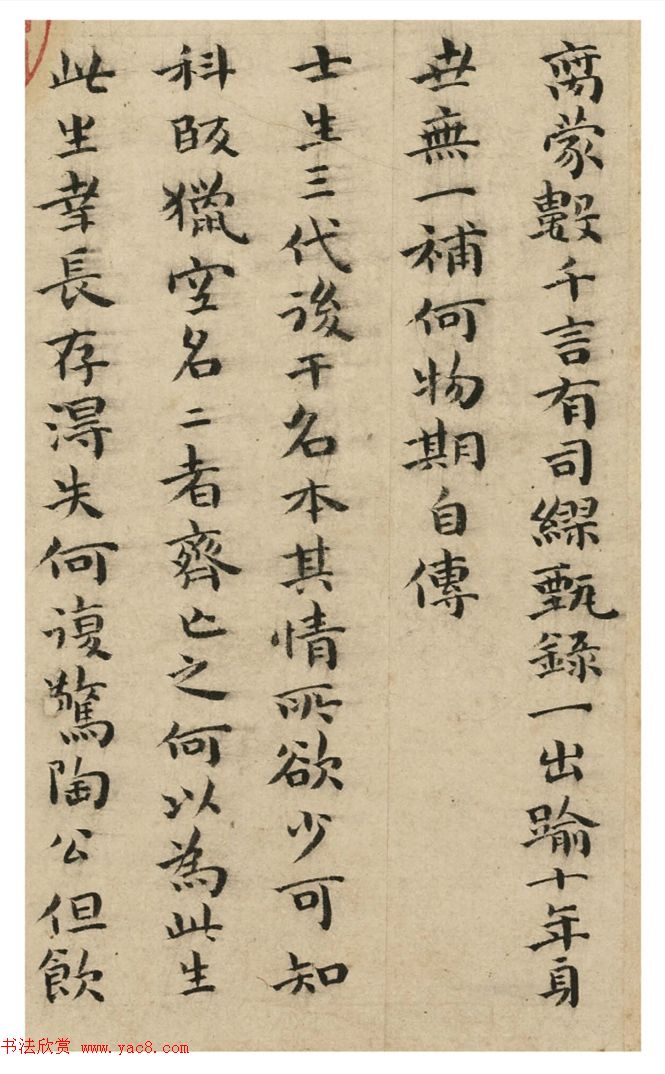 蒙數千言有司繆甄錄一出踰十年身
世無一補何物期自傳
士生三代後干名本其情所欲少可知
科獵空名二者齊亡之何以為此生
此生幸長存淂失何復驚陶公但飲
书法欣赏 www.yac8.com